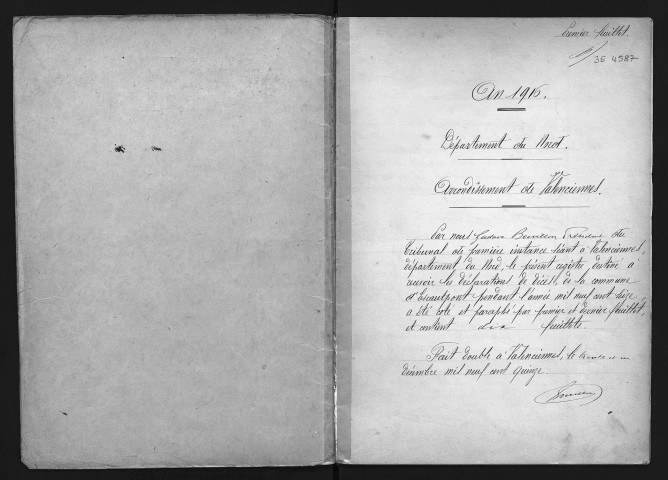 Premier feuillet.
3E 4587
An 1916.
Département du Nord.
Arrondissement de Valenciennes.
Par nous Président du
Tribunal de première instance séant à Valenciennes,
département du Nord, le présent registre destiné à
recevoir les déclarations de décès de la commune
d'Escautpont pendant l'année mil neuf cent seize
a été coté et paraphé par premier et dernier feuillet,
et contient dix feuillets.
Fait double à Valenciennes, le trente et un
décembre mil neuf cent quinze